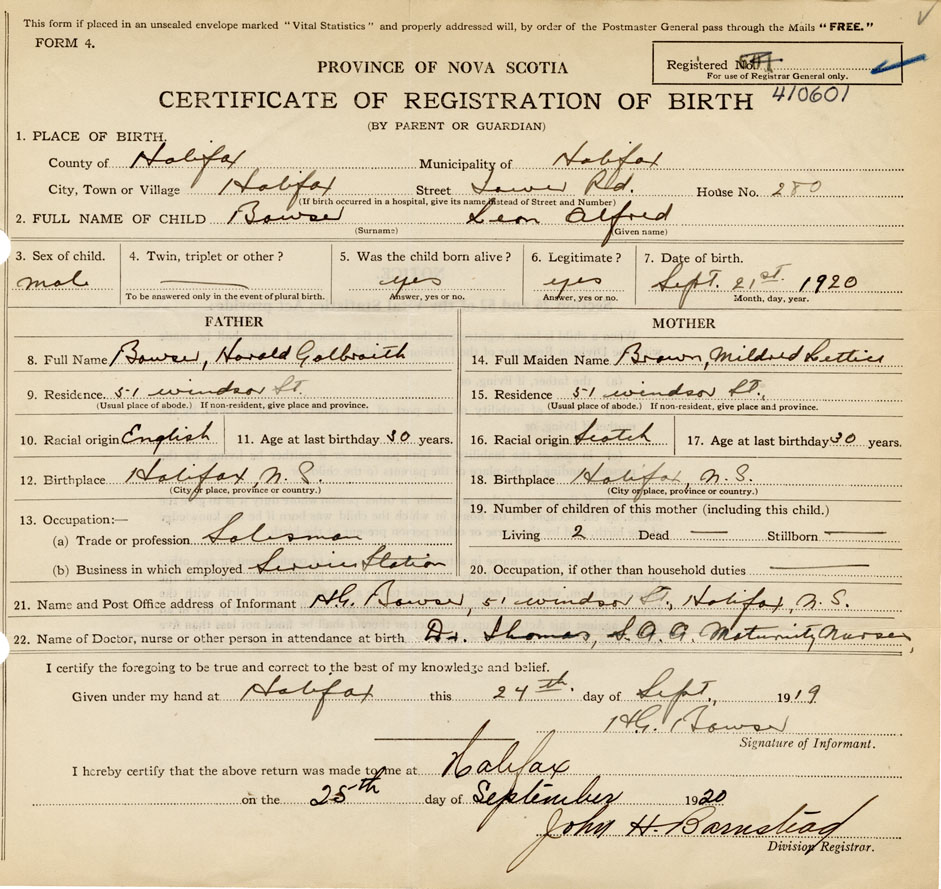 This form if placed in an unsealed envelope marked "Vital Statistics" and properly addressed will, by order of the Postmaster General pass through the Mails "FREE."
FORM 4.
Registered No.
For use of Registrar General only.
410601
PROVINCE OF NOVA SCOTIA
CERTIFICATE OF REGISTRATION OF BIRTH
(BY PARENT OR GUARDIAN)
1. PLACE OF BIRTH.
County of Halifax Municipality of Halifax
City, Town or Village Halifax Street Tower Rd. House No. 280
(If birth occurred in a hospital, give its name instead of Street and Number)
2. FULL NAME OF CHILD Bowser Leon Alfred
(Surname) (Given name)
3. Sex of child. 4. Twin, triplet or other? 5. Was the child born alive? 6. Legitimate? 7. Date of birth.
male yes yes Sept. 21st. 1920
To be answered only in the event of plural birth. Answer, yes or no. Answer, yes or no. Month, day, year.
FATHER MOTHER
8. Full Name Bowser, Harold Galbraith 14. Full Maiden Name Brown, Mildred Lettie
9. Residence. 51 windsor St. 15. Residence 51 windsor St.,
(Usual place of abode.) If non-resident, give place and province. (Usual place of abode.) If non-resident, give place and province.
10. Racial origin English 11. Age at last birthday 30 years. 16. Racial origin Scotch 17. Age at last birthday 30 years.
12. Birthplace Halifax, N.S. 18. Birthplace Halifax, N.S.
(City or place, province or country.) (City or place, province or country.)
13. Occupation:— 19. Number of children of this mother (including this child.)
(a) Trade or profession Salesman Living 2 Dead — Stillborn —
(b) Business in which employed Service Station 20. Occupation, if other than household duties —
21. Name and Post Office address of Informant H.G. Bowser, 51 windsor St., Halifax, N.S.
22. Name of Doctor, nurse or other person in attendance at birth Dr. Thomas, S.A. Maternity Nurse,
I certify the foregoing to be true and correct to the best of my knowledge and belief.
Given under my hand at Halifax this 24th. day of Sept., 1919
H.G. Bowser
Signature of Informant.
I hereby certify that the above return was made to me at Halifax
on the 25th day of September 1920
John H. Barnstead
Division Registrar.